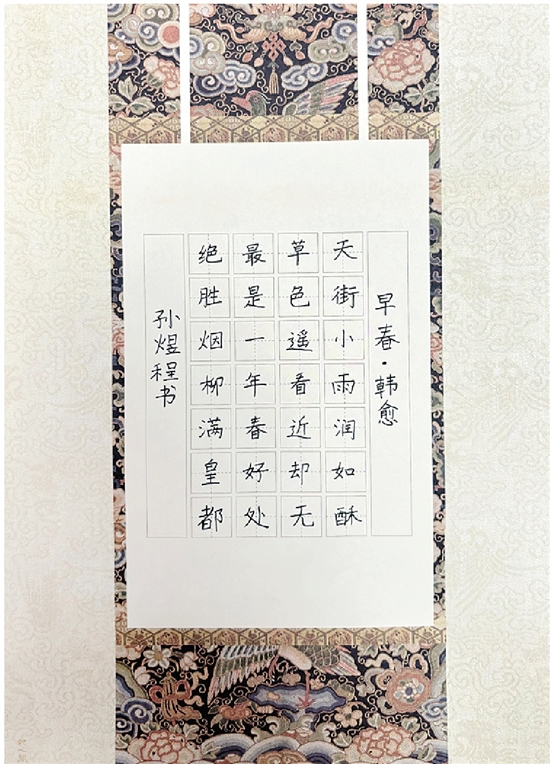 早春·韩愈
天街小雨润如酥
草色遥看近却无
最是一年春好处
绝胜烟柳满皇都
孙煜程书